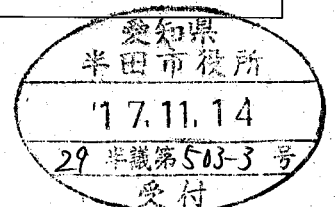 愛知県
半田市役所
'17.11.14
29 半議第503-3号
受付